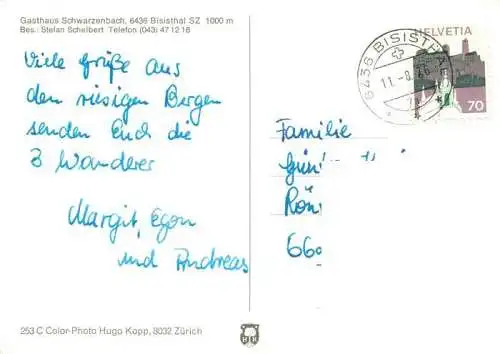 Gasthaus Schwarzenbach, 6436 Bisisthal SZ 1000 m
Bes.: Stefan Schelbert Telefon (043) 47 12 16
Viele Grüße aus
den riesigen Bergen
senden Euch die
3 Wanderer
Margit, Egon
und Andreas
HELVETIA
70
6436 BISISTHAL
Familie
Rön
66
253 C Color-Photo Hugo Kopp, 8032 Zürich